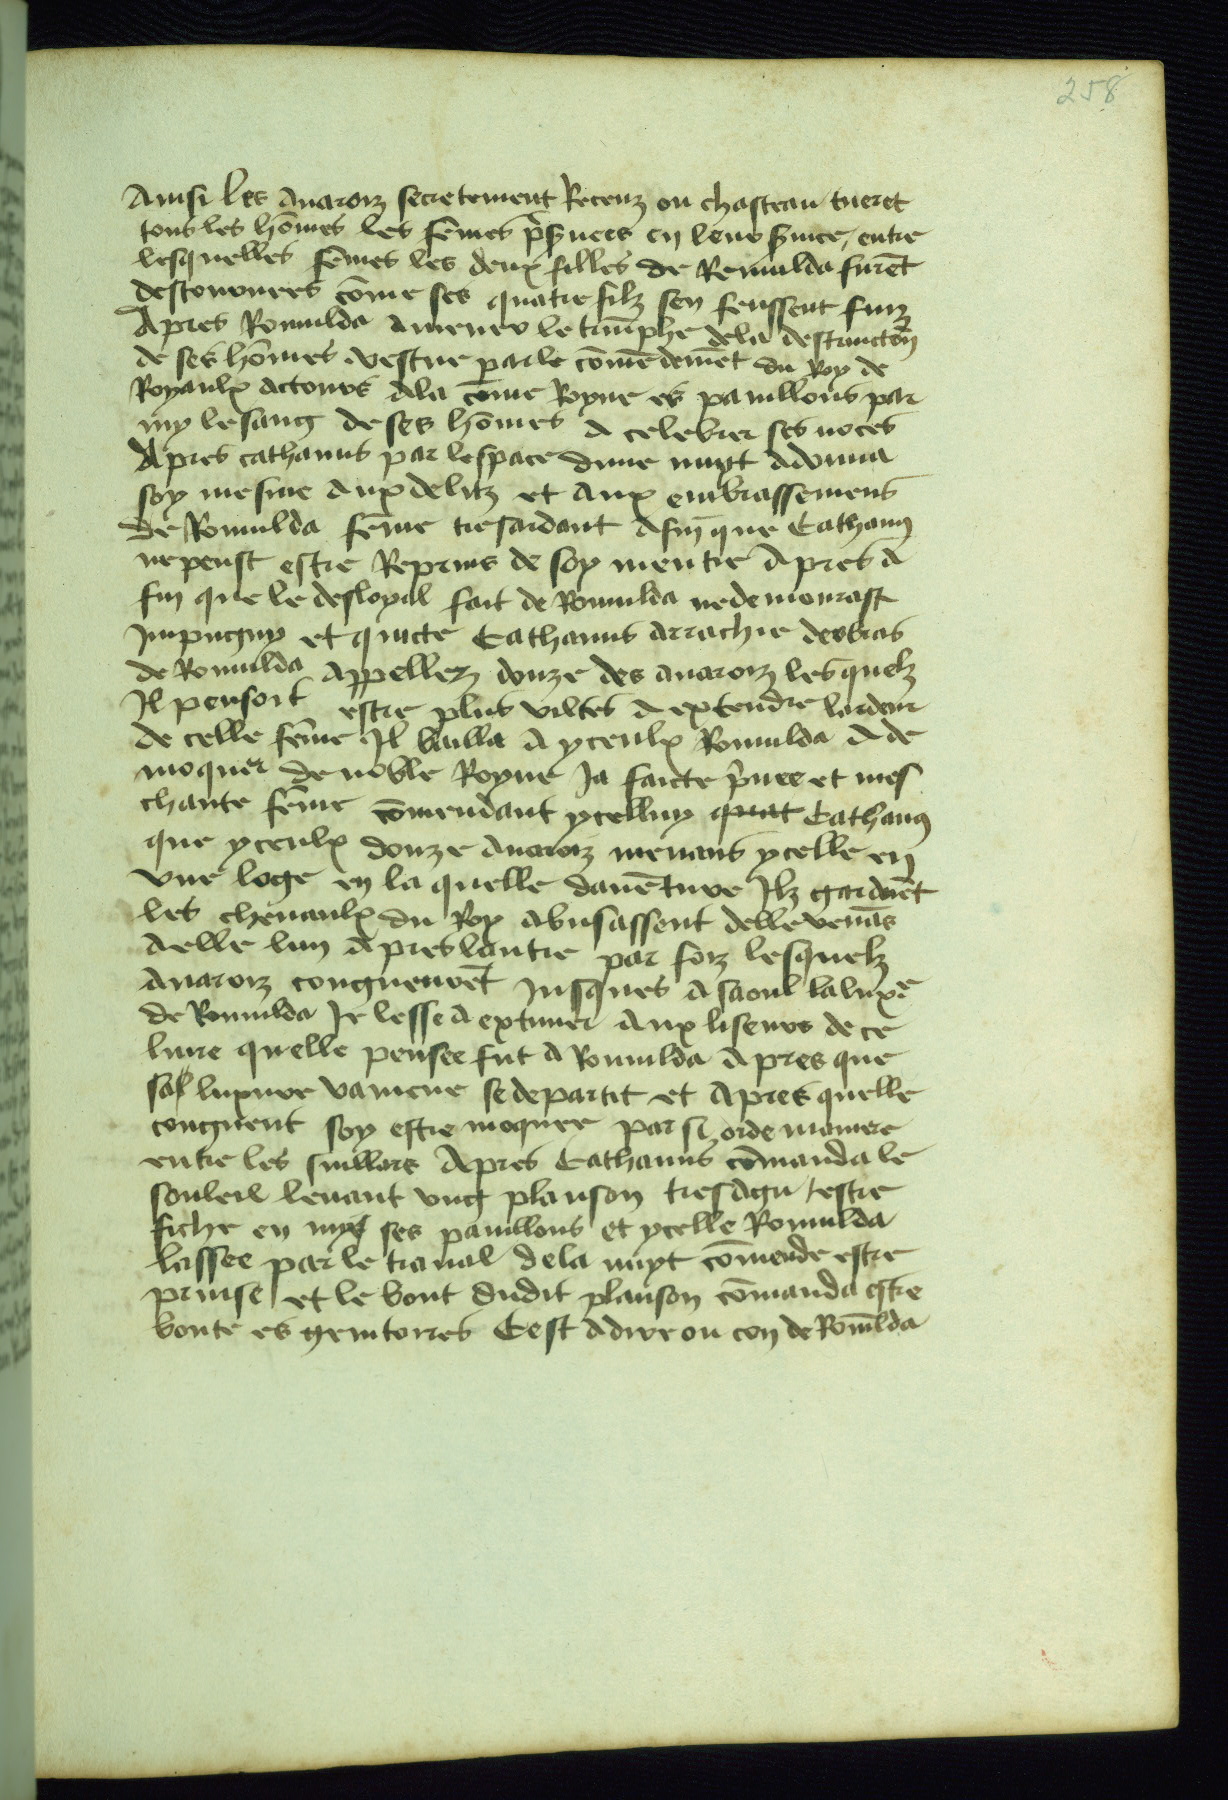 258
Ainsi les auarois secretement Receuz ou chasteau tueret
tous les hōmes les fēmes p̄ seruees en leur seruice, entre
lesquelles fēmes les deux filles de Remulda furēt
destournees cōme ses quatre filz sen feussent fuiz
Apres Romulda amener le triūphe dela destructōn
de ses hōmes vestue parle cōmēdemēt du Roy de
Royaulx actours ala cōme Royne es pauillons par
my lesang de ses hōmes a celebrer ses noces
Apres cathanus par lespace dune nuyt adonna
soy mesme aux delitz et aux embrassemens
de Romulda fēme tresardant afin que Cathanus
ne peust estre Reprins de soy mentir Apres a
fin que le desloyal fait de Romulda nedemourast
Impugny et quicte Cathanus arrachie desbras
de Romulda appellez douze des auarois lesquelz
Il pensoit estre plus viltes a extendre lardeur
de celle fēme Il bailla a yceulx Romulda a de
moquer de noble Royne Ja faicte p̄uee et mes
chante fēme cōmendant ycelluy Cathanus
que yceulx douze auarois menans ycelle en
vne loge en la quelle dauēture Ilz gardoiēt
les cheuaulx du Roy abusassent delle venās
aelle lun apres lautre par fois lesquelz
auarois congneurēt Jusques a saoul laluxe
de Romulda Je lesse a extimer aux liseurs de ce
liure quelle pensee fut a Romulda apres que
sa luxure vaincue sedepartit et apres quelle
congneut soy estre moquee par si orde maniere
entre les suillars Apres Cathanus cōmanda le
souleil leuant vng planson tresagu estre
fiche en my ses pauillons et ycelle Romulda
lassee par le trauail dela nuyt cōmende estre
prinse et le bout dudit planson cōmanda estre
boute es genitoires Cest adire ou con de Romulda